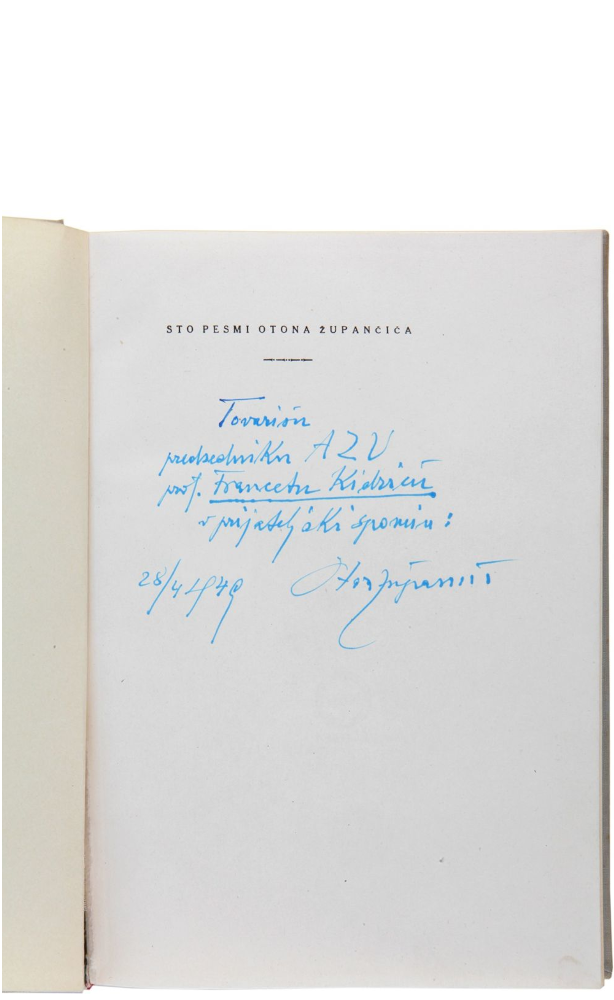 STO PESMI OTONA ŽUPANČIČA
Tovarišu
predsedniku AZU
prof. Francetu Kidriču
v prijateljski spomin:
28/4 1949 Oton Župančič